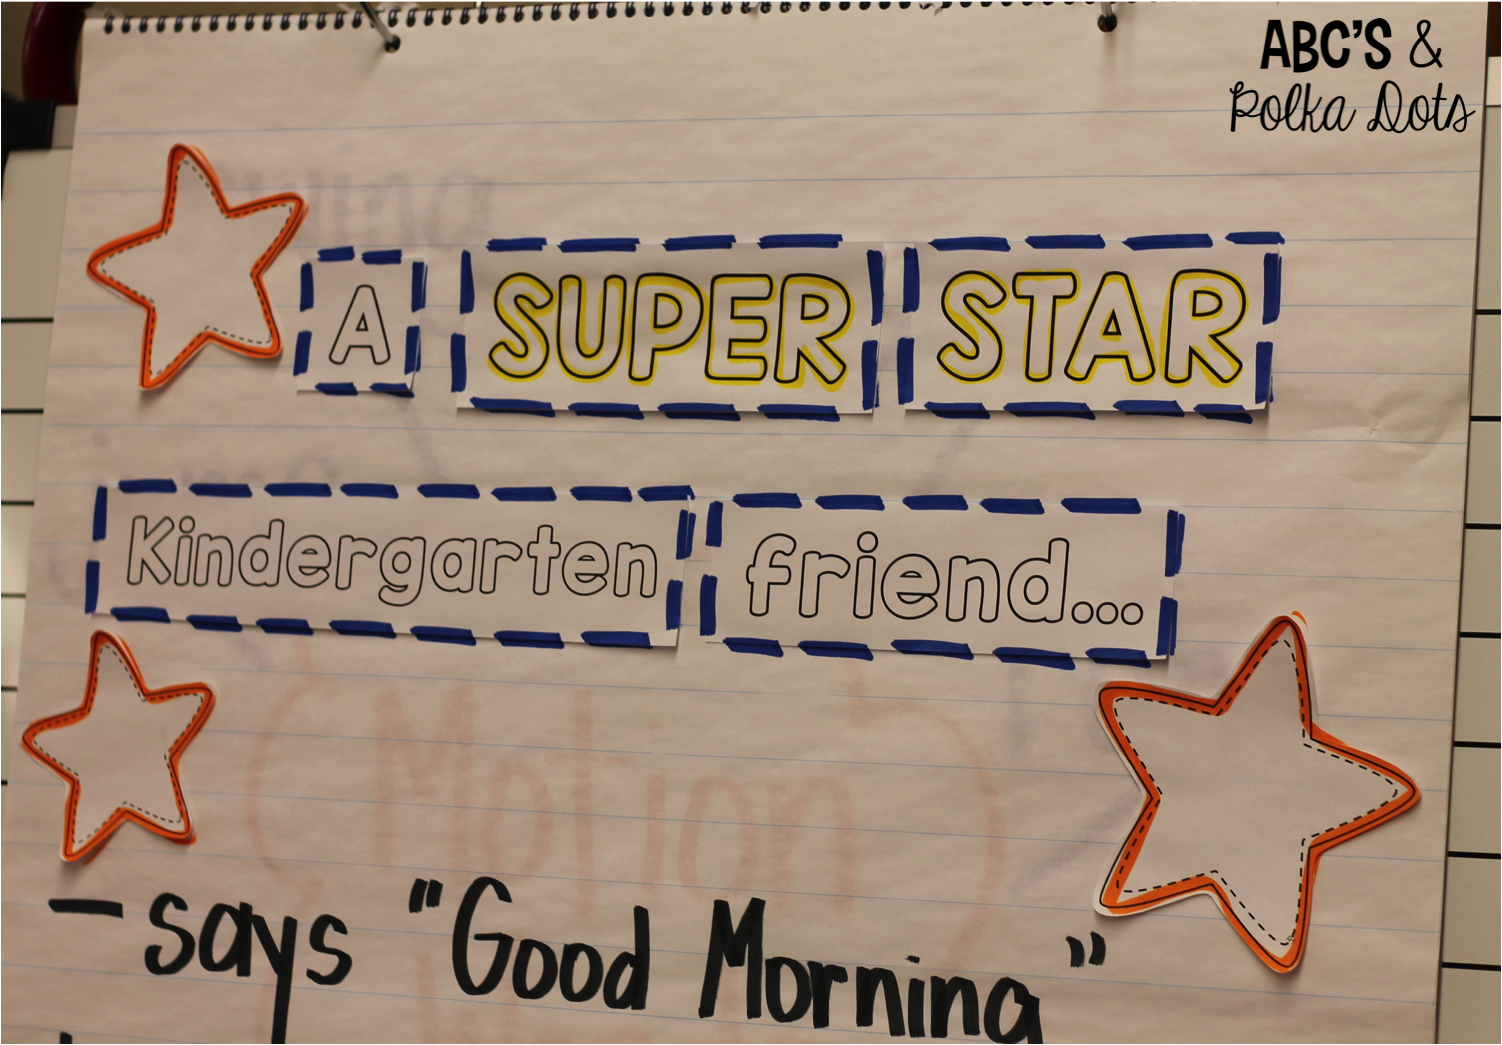 ABC'S &
Polka Dots
A SUPER STAR
Kindergarten friend...
Motion
- says "Good Morning"